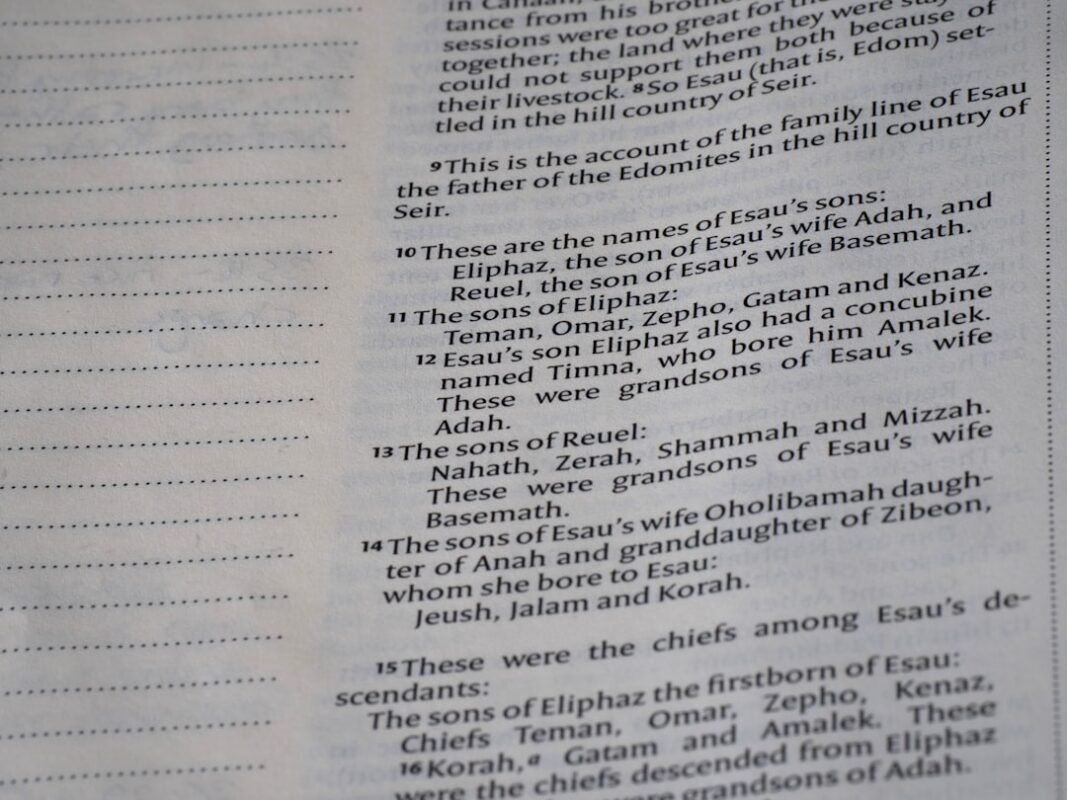 in Canaan,
tance from his broth
sessions were too great for th
together; the land where they were stay
could not support them both because of
their livestock. 8So Esau (that is, Edom) set-
tled in the hill country of Seir.
9This is the account of the family line of Esau
the father of the Edomites in the hill country of
Seir.
10These are the names of Esau's sons:
Eliphaz, the son of Esau's wife Adah, and
Reuel, the son of Esau's wife Basemath.
11The sons of Eliphaz:
Teman, Omar, Zepho, Gatam and Kenaz.
12Esau's son Eliphaz also had a concubine
named Timna, who bore him Amalek.
These were grandsons of Esau's wife
Adah.
13The sons of Reuel:
Nahath, Zerah, Shammah and Mizzah.
These were grandsons of Esau's wife
Basemath.
14The sons of Esau's wife Oholibamah daugh-
ter of Anah and granddaughter of Zibeon,
whom she bore to Esau:
Jeush, Jalam and Korah.
15These were the chiefs among Esau's de-
scendants:
The sons of Eliphaz the firstborn of Esau:
Chiefs Teman, Omar, Zepho, Kenaz,
16Korah,a Gatam and Amalek. These
were the chiefs descended from Eliphaz
were grandsons of Adah.